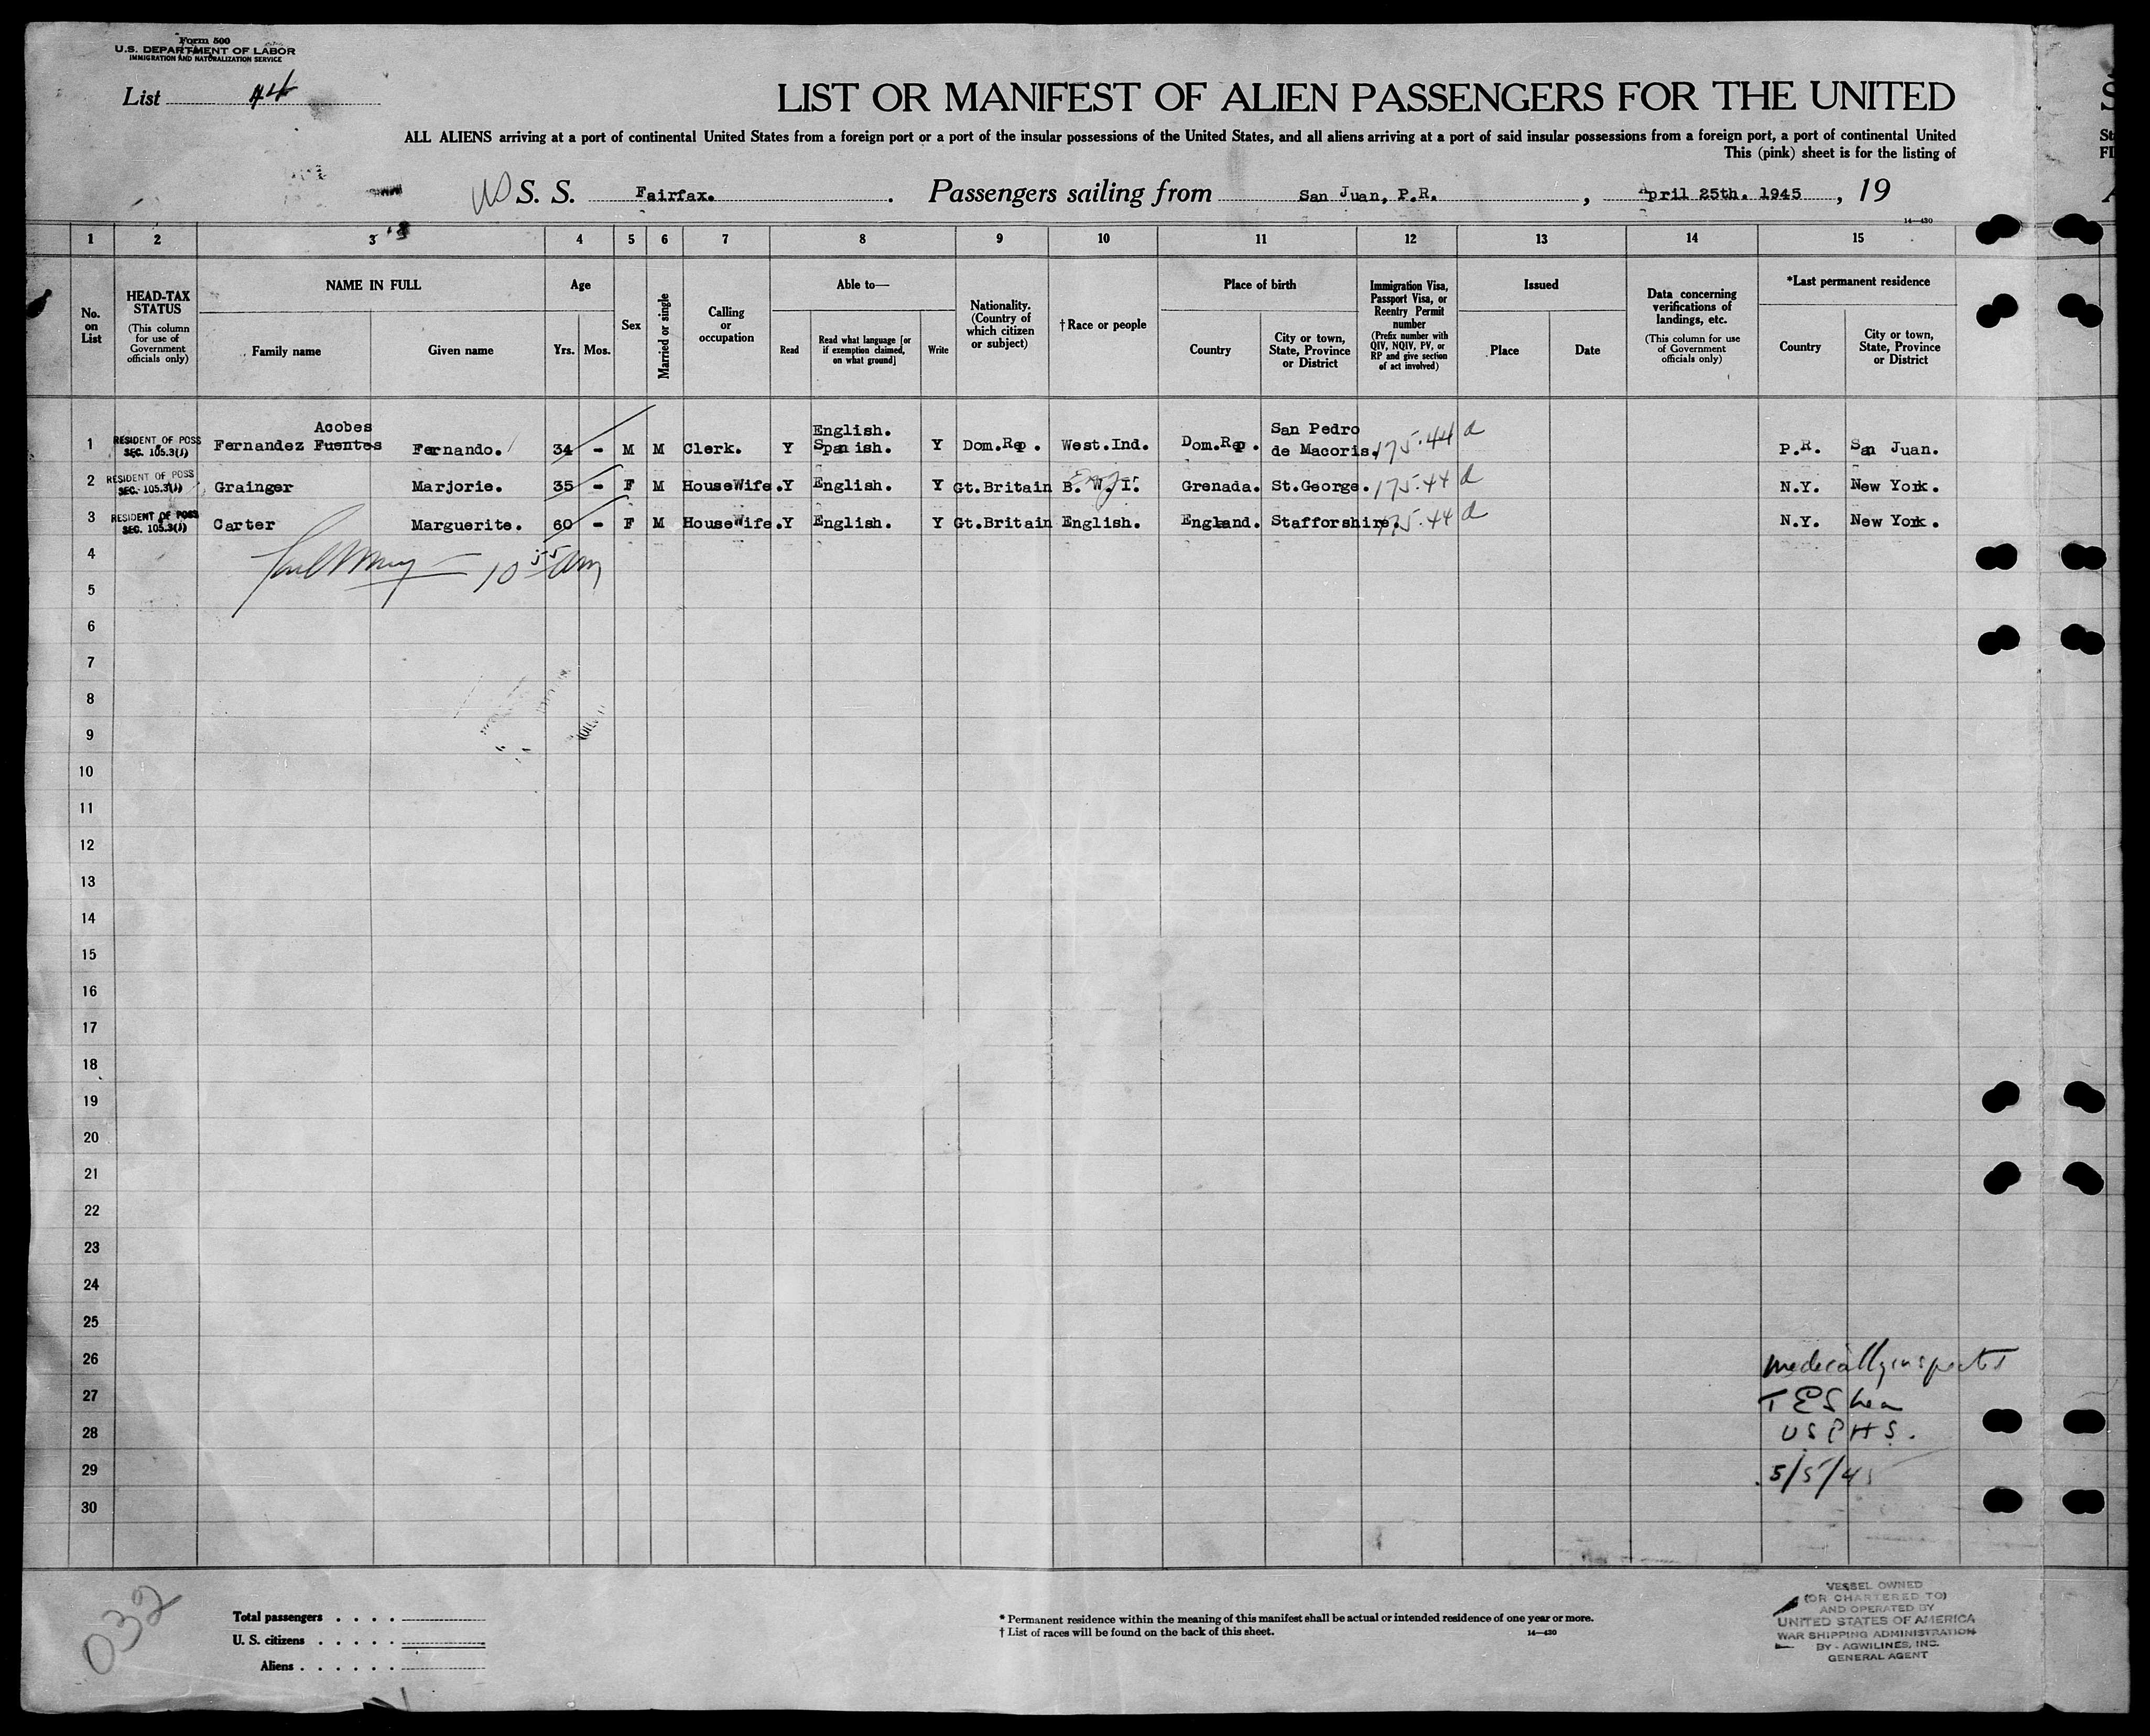 Form 500
U.S. DEPARTMENT OF LABOR
IMMIGRATION AND NATURALIZATION SERVICE
List 44
LIST OR MANIFEST OF ALIEN PASSENGERS FOR THE UNITED
ALL ALIENS arriving at a port of continental United States from a foreign port or a port of the insular possessions of the United States, and all aliens arriving at a port of said insular possessions from a foreign port, a port of continental United
This (pink) sheet is for the listing of
S. S. Fairfax. Passengers sailing from San Juan, P.R. , April 25th. 1945 , 19
14—430
1 2 3 4 5 6 7 8 9 10 11 12 13 14 15
No. on List
HEAD-TAX STATUS
(This column for use of Government officials only)
NAME IN FULL
Family name
Given name
Age
Yrs. Mos.
Sex
Married or single
Calling or occupation
Able to—
Read
Read what language [or if exemption claimed, on what ground]
Write
Nationality. (Country of which citizen or subject)
† Race or people
Place of birth
Country
City or town, State, Province or District
Immigration Visa, Passport Visa, or Reentry Permit number
(Prefix number with QIV, NQIV, PV, or RP and give section of act involved)
Issued
Place
Date
Data concerning verifications of landings, etc.
(This column for use of Government officials only)
*Last permanent residence
Country
City or town, State, Province or District
Acobes
English.
San Pedro
1 RESIDENT OF POSS SEC. 105.3(J) Fernandez Fuentes Fernando. 34 - M M Clerk. Y Spanish. Y Dom.Rep. West.Ind. Dom.Rep. de Macoris. 175.44 d P.R. San Juan.
2 RESIDENT OF POSS SEC. 105.3(J) Grainger Marjorie. 35 - F M HouseWife. Y English. Y Gt.Britain B. W. I. Grenada. St.George. 175.44 d N.Y. New York.
3 RESIDENT OF POSS SEC. 105.3(J) Carter Marguerite. 60 - F M HouseWife. Y English. Y Gt.Britain English. England. Stafforshire. 175.44 d N.Y. New York.
4
10 55 am
5
6
7
8
9
10
11
12
13
14
15
16
17
18
19
20
21
22
23
24
25
26 medically inspected
27 T E Shea
28 USPHS.
29 5/5/45
30
032
Total passengers . . . .
U. S. citizens . . . . .
Aliens . . . . . .
* Permanent residence within the meaning of this manifest shall be actual or intended residence of one year or more.
† List of races will be found on the back of this sheet.
14—430
VESSEL OWNED
(OR CHARTERED TO)
AND OPERATED BY
UNITED STATES OF AMERICA
WAR SHIPPING ADMINISTRATION
BY - AGWILINES, INC.
GENERAL AGENT